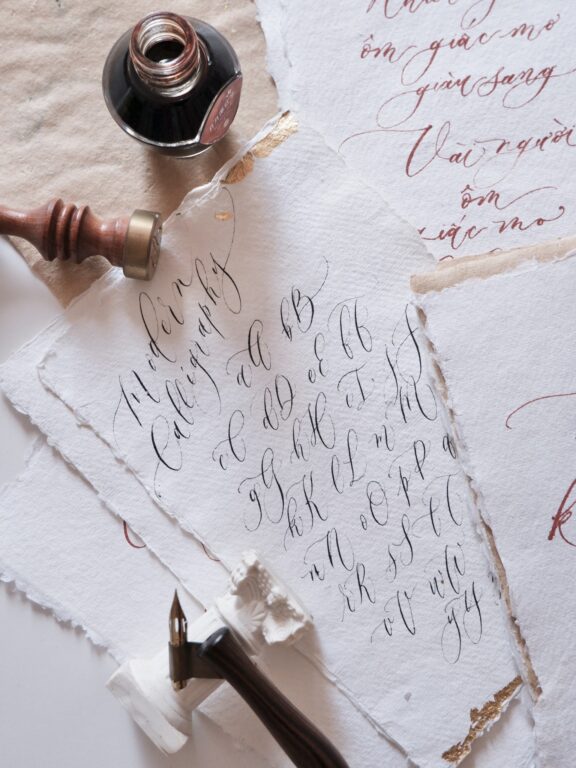 Modern
Calligraphy
aA bB
cC dD eE fF
gG hH iI jJ
kK lL mM
nN oO pP q
rR sS tT
vV
yY
ôm giấc mơ
giàu sang
Vài người
ôm
giấc mơ
k